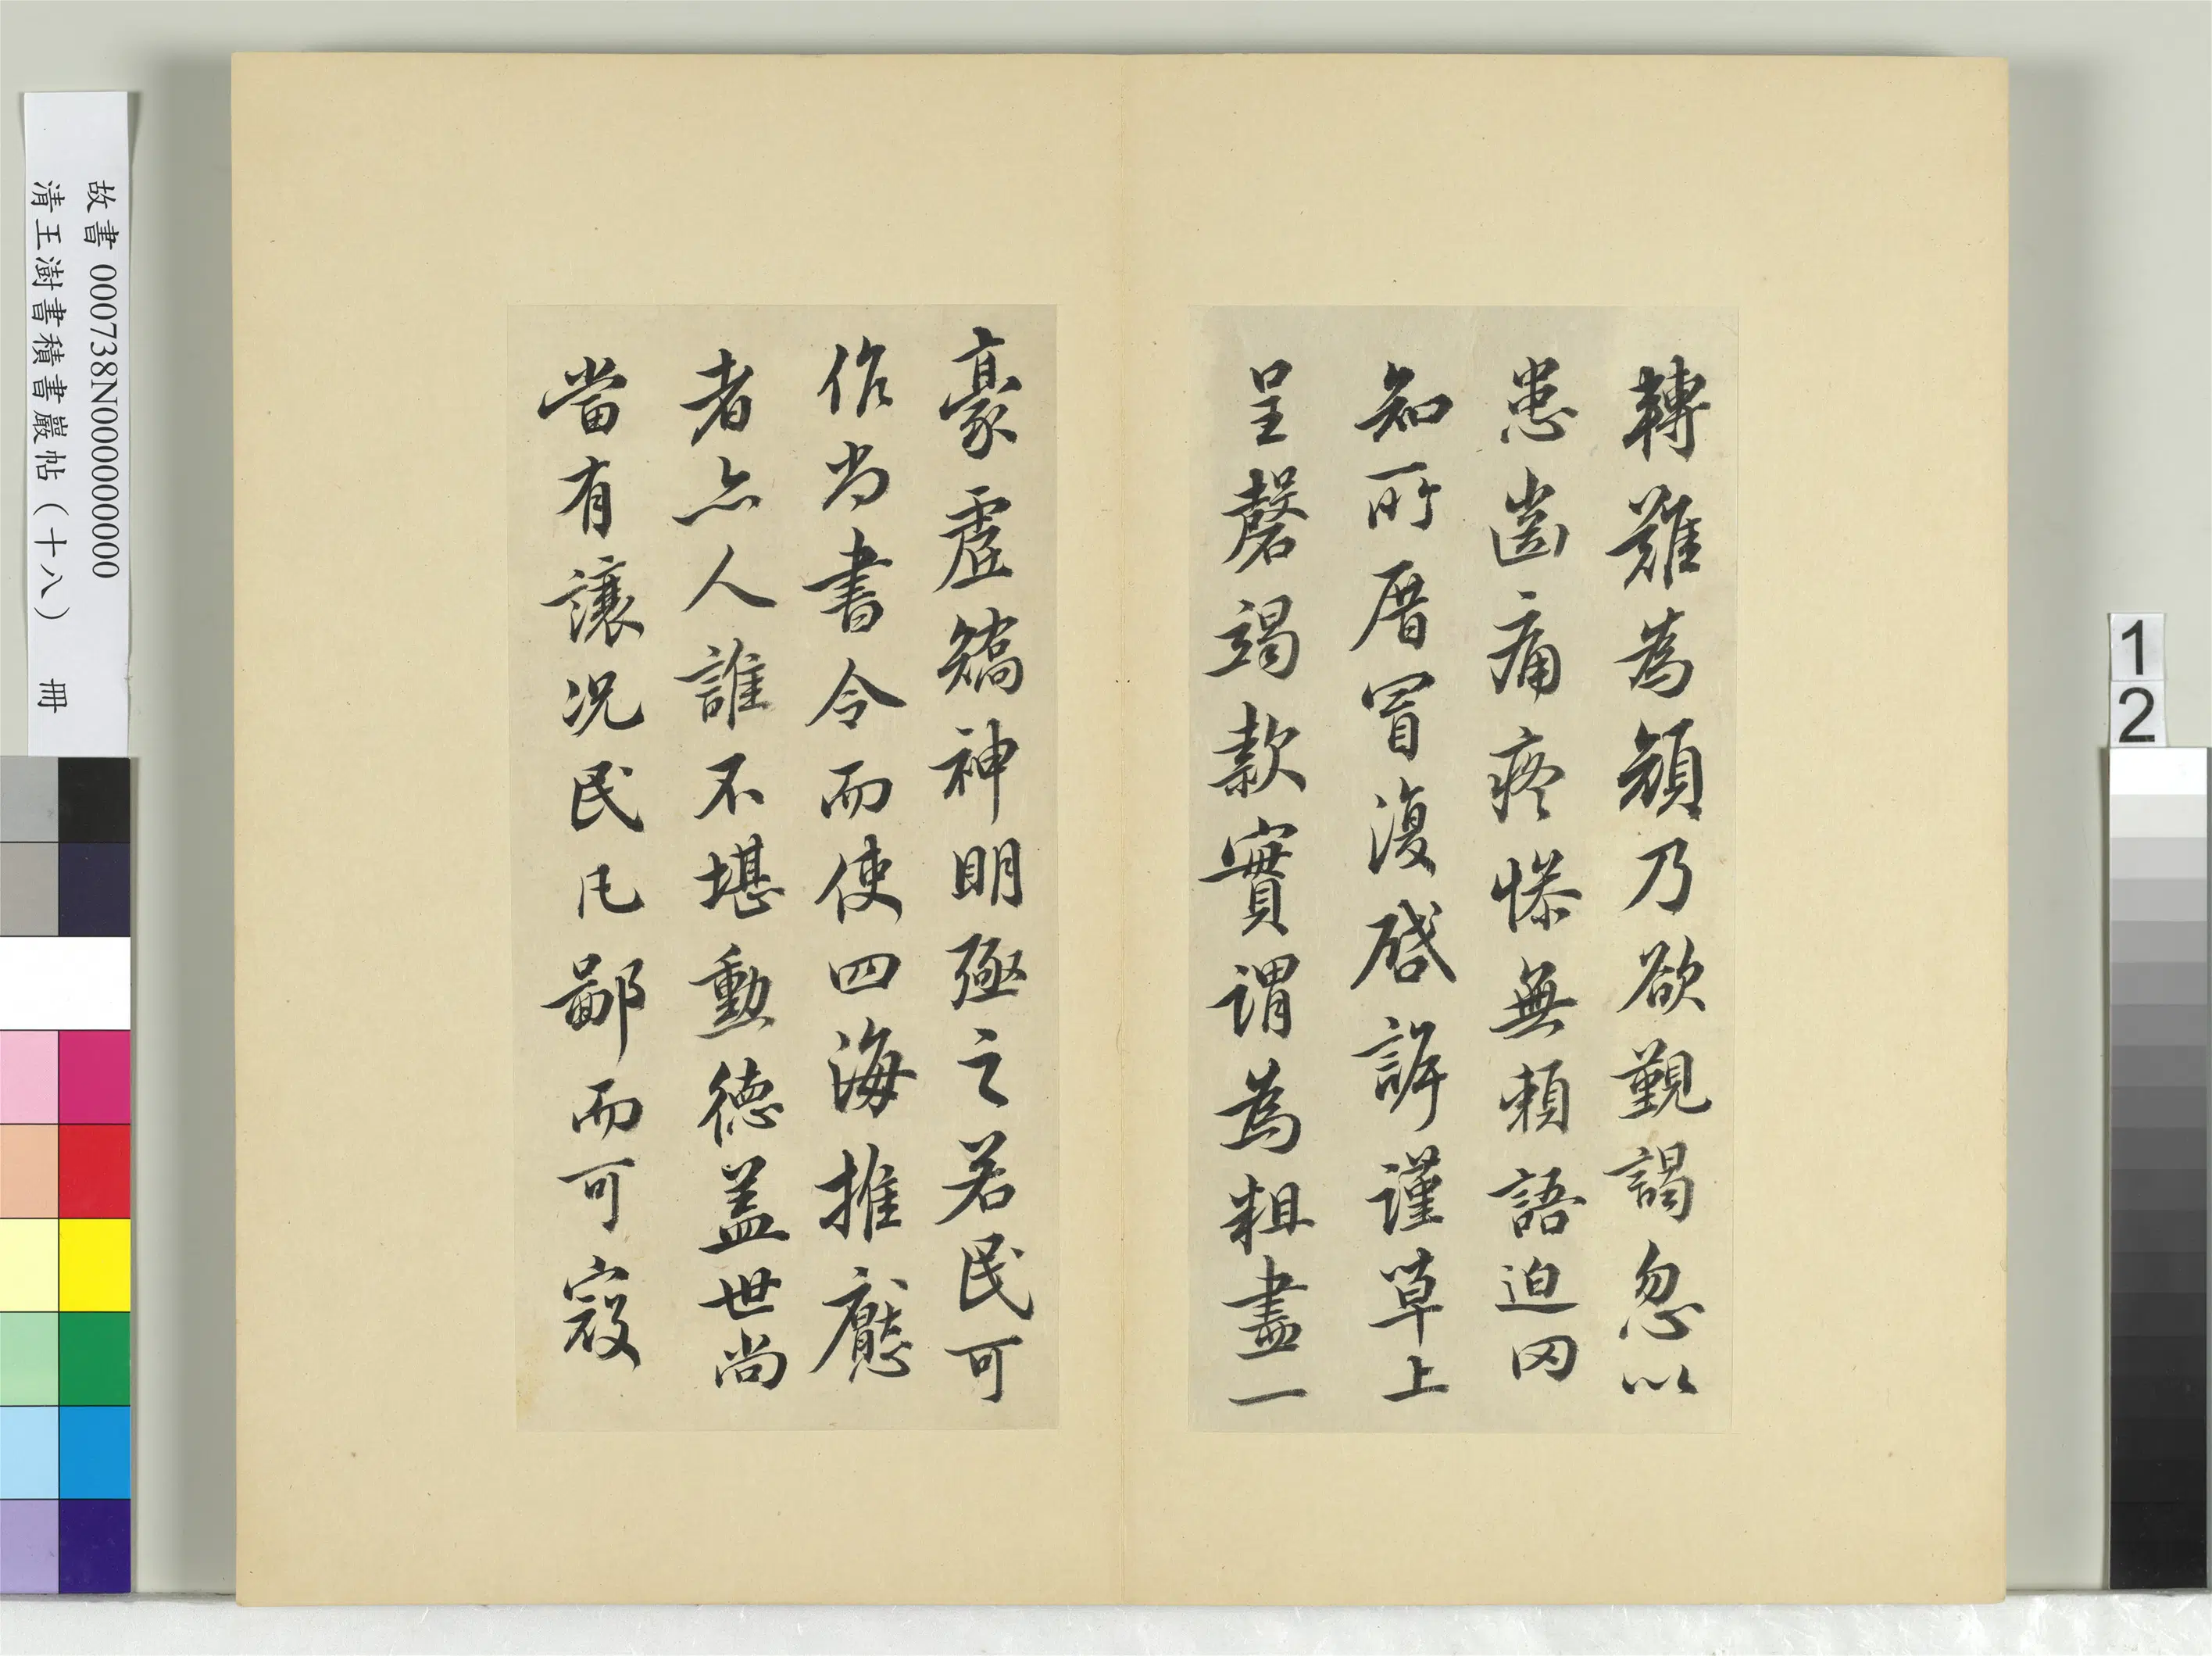 轉難為頗乃欲覲謁忽以
患齒痛疼慘無賴語迫罔
知所厝冒復啓訴謹草上
呈罄竭款實謂為粗盡一
豪虛矯神明殛之若民可
作尚書令而使四海推懬
者亦人誰不堪勳德蓋世尚
當有讓況民凡鄙而可寇
故書 000738N000000000
清王澍書積書巖帖（十八） 冊
1
2